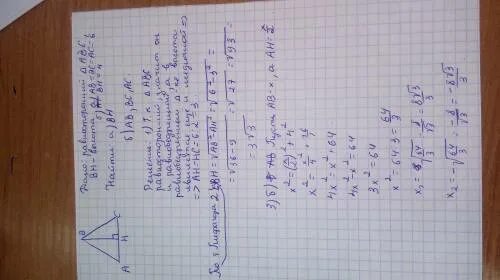 B
A
H
C
Дано: равносторонний △ABC
BH - высота а) AB=BC=AC=6
б) BH=4
Найти: а) BH
б) AB, BC, AC
Решение: 1) Т.к △ABC
равносторонний, значит он
и равнобедренный, а в
равнобедренном △-ке высота
является и медианой =>
=> AH=HC=6:2=3
2) BH=√AB²-AH²=√6²-3²=
=√36-9=√27=√9·3=
=3√3
3) б) AB Пусть AB=x, а AH=x/2
x²=(x/2)²+4²
x²=x²/4+16
4x²=x²+64
4x²-x²=64
3x²=64
x²=64:3=64/3
x₁=√64/3=8/√3=8√3/3
x₂=-√64/3=-8/√3=-8√3/3